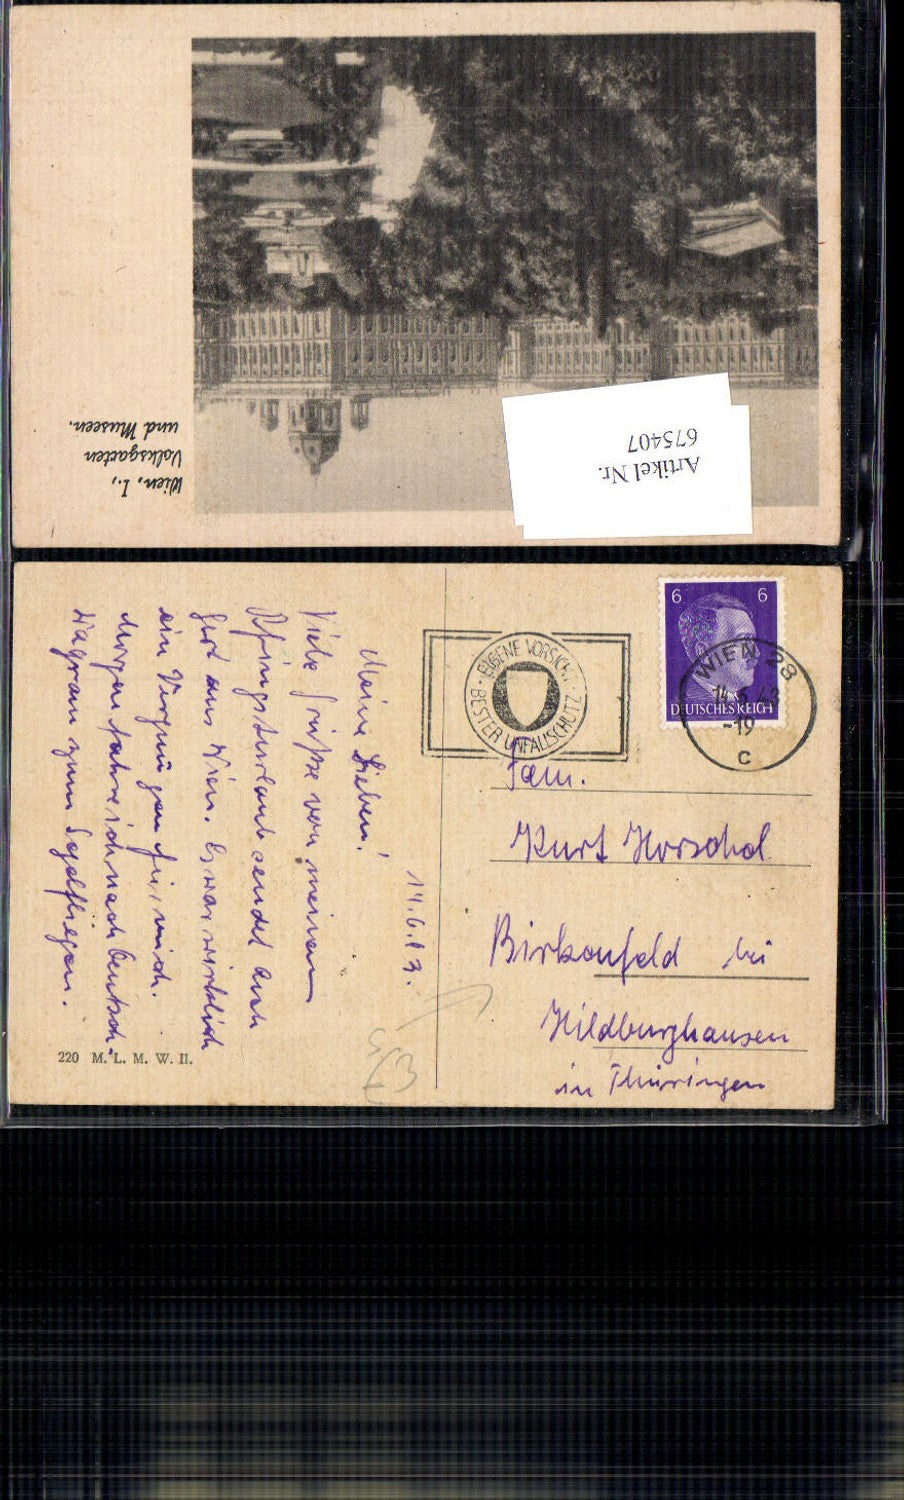 Wien, I.,
Volksgarten
und Museen.
Artikel Nr.
675407
EIGENE VORSICHT
BESTER UNFALLSCHUTZ
6 6
DEUTSCHES REICH
WIEN 28
14.6.43
-19
C
14.6.43.
Meine Lieben!
Viele Grüße von meinem
Pfingsturlaub sendet Euch
Gert aus Wien. Es war wirklich
ein Vergnügen für mich.
Morgen fahre ich nach Deutsch-
Wagram zum Segelfliegen.
Fam.
Kurt Horschel
Birkenfeld bei
Hildburghausen
in Thüringen
220 M. L. M. W. II.